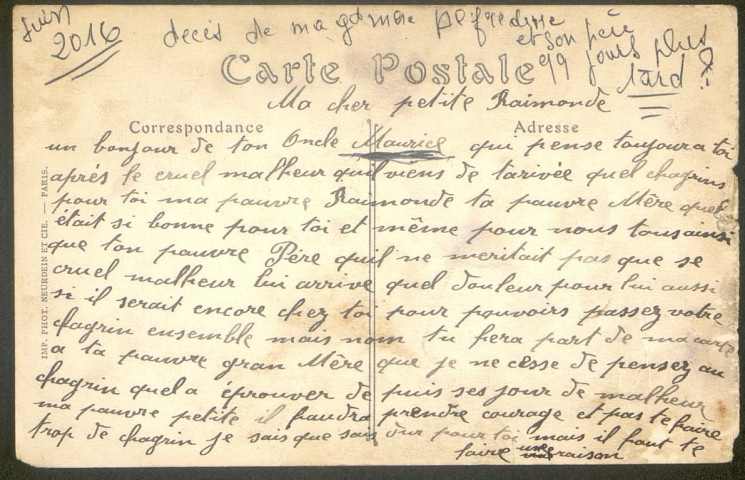 Juin
2016
décès de ma
et son père
99 jours plus
tard ?
Carte Postale
Ma cher petite Raimonde
Correspondance
Adresse
un bonjour de ton Oncle Mauriel qui pense toujours a toi
aprés le cruel malheur qui viens de tarivée quel chagrins
pour toi ma pauvre Raimonde ta pauvre Mère quel
était si bonne pour toi et même pour nous tous ainsi
que ton pauvre Pére quil ne meritait pas que se
cruel malheur lui arrive quel douleur pour lui aussi
si il serait encore chez toi pour pouvoirs passez votre
chagrin ensemble mais nom tu fera part de ma carte
a ta pauvre gran Mère que je ne cesse de pensez au
chagrin quel a éprouver de puis ses jour de malheur
ma pauvre petite il faudra prendre courage et pas te faire
trop de chagrin je sais que sais dur pour toi mais il faut te
faire une raison
IMP. PHOT. NEURDEIN ET CIE. — PARIS.